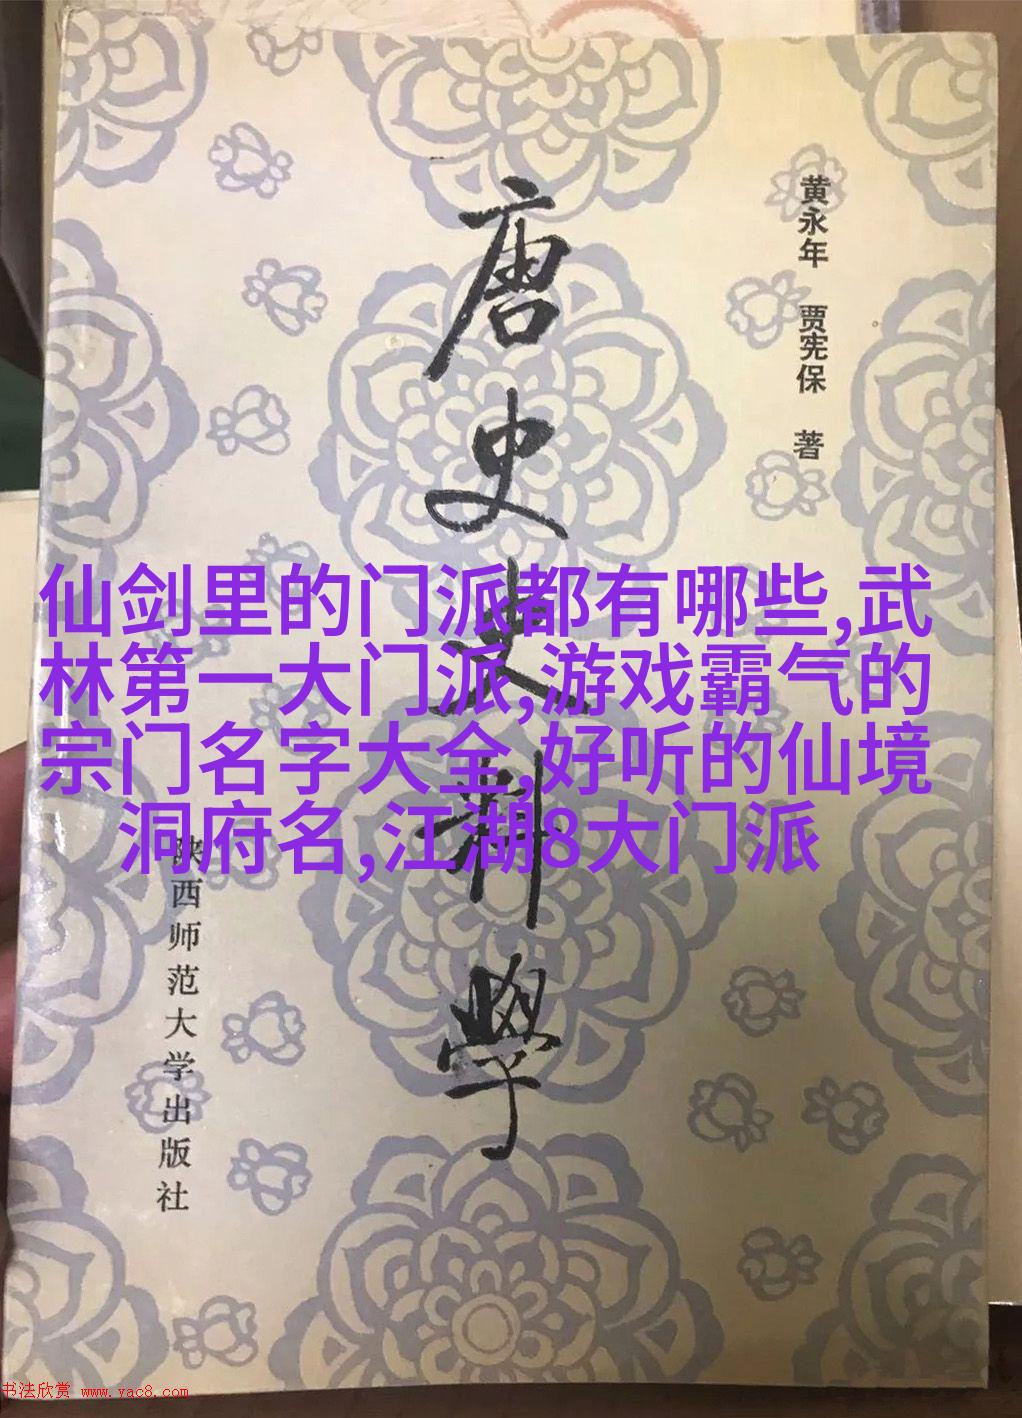 黄永年 贾宪保 著
唐史史料学
仙剑里的门派都有哪些,武
林第一大门派,游戏霸气的
宗门名字大全,好听的仙境
洞府名,江湖8大门派
陕西师范大学出版社
书法欣赏 www.yac8.com